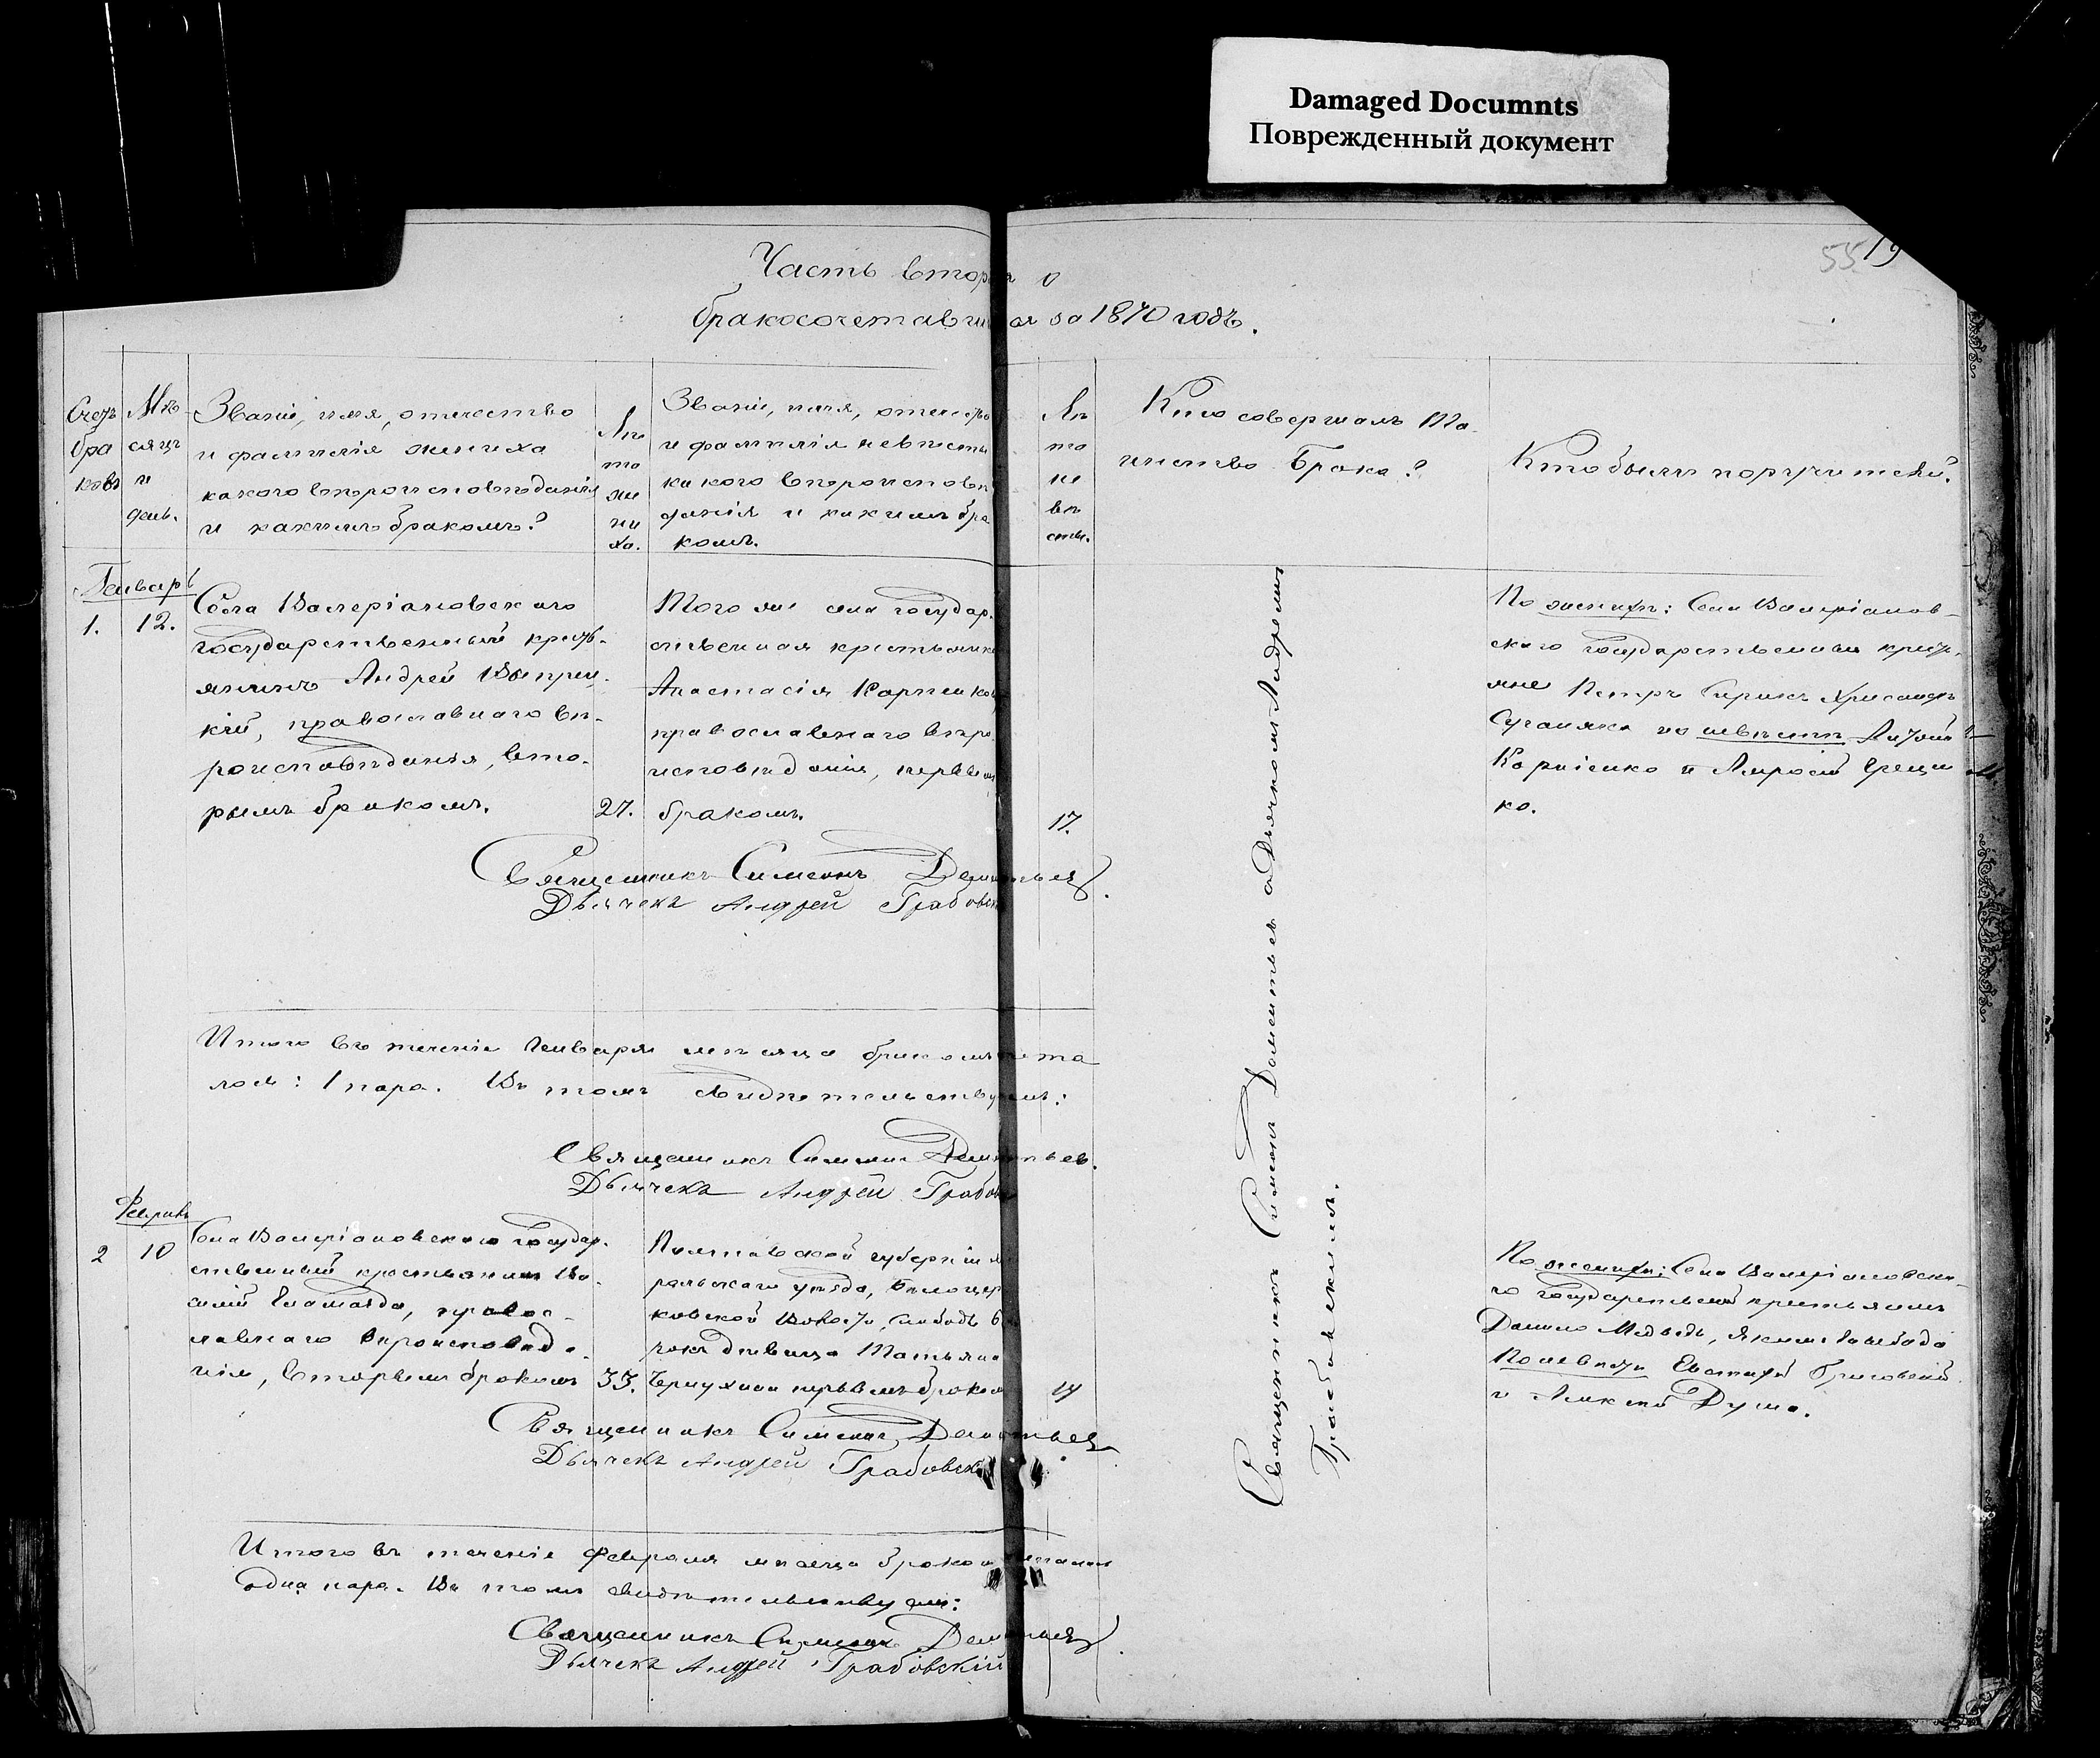 Damaged Documnts
Поврежденный документ
55 19
Часть втор я о
бракосочетавши ся за 1870 годъ.
Счетъ
бра
ковъ
Мѣ
сяцъ
и
день.
Званіе, имя, отчество
и фамилія жениха
какого вѣроисповѣданія
и какимъ бракомъ?
Лѣ
та
же
ни
ха.
Званіе, имя, отчество
и фамилія невѣсты
какого вѣроисповѣ
данія и какимъ бра
комъ.
Лѣ
та
не
вѣ
сты.
Кто совершалъ Та
инство Брака?
Кто были поручители?
Генварь
1. 12.
Села Валеріановскаго
государственный кресть-
янинъ Андрей
кій, православнаго вѣ-
роисповѣданія, вто-
рымъ бракомъ. 27.
Того же села государ.
ственная крестьянка
Анастасія Корніенкова
православнаго вѣро
исповѣданія, первымъ
бракомъ. 17.
По женихѣ: Села Валеріанов-
скаго государственные кресть
яне Петръ Хрисанфъ
по невѣстѣ
Корніенко и
ко.
Священникъ Симеонъ Дементьев.
Дьячекъ Андрей Грабовск
Итого въ теченіе Генваря мѣсяца бракомъ чета
лось: 1 пара. Въ томъ свидѣтельствуемъ:
Священникъ Симеонъ Дементьев.
Дьячекъ Андрей Грабов
Священникъ Симеонъ Дементьев с Дьячкомъ Андреемъ
Грабовскимъ.
Февраль
2 10
Села Валеріановскаго Государ.
ственный крестьянинъ Ва
силій правос-
лавнаго вѣроисповѣда
нія, вторымъ бракомъ 33.
Полтавской губерніи
уѣзда, Бѣлоцер
ковской Волости,
дѣвица Татьяна
первымъ бракомъ
По женихѣ: Села Валеріановска-
го Государственный крестьянинъ
Данило Медвѣдь,
По невѣстѣ Евстафій
и Алексѣй
Священникъ Симеонъ Дементьев
Дьячекъ Андрей Грабовск
Итого въ теченіе Февраля мѣсяца брако четалась
одна пара. Въ томъ свидѣтельствуемъ:
Священникъ Симеонъ Дементьев.
Дьячекъ Андрей Грабовскій